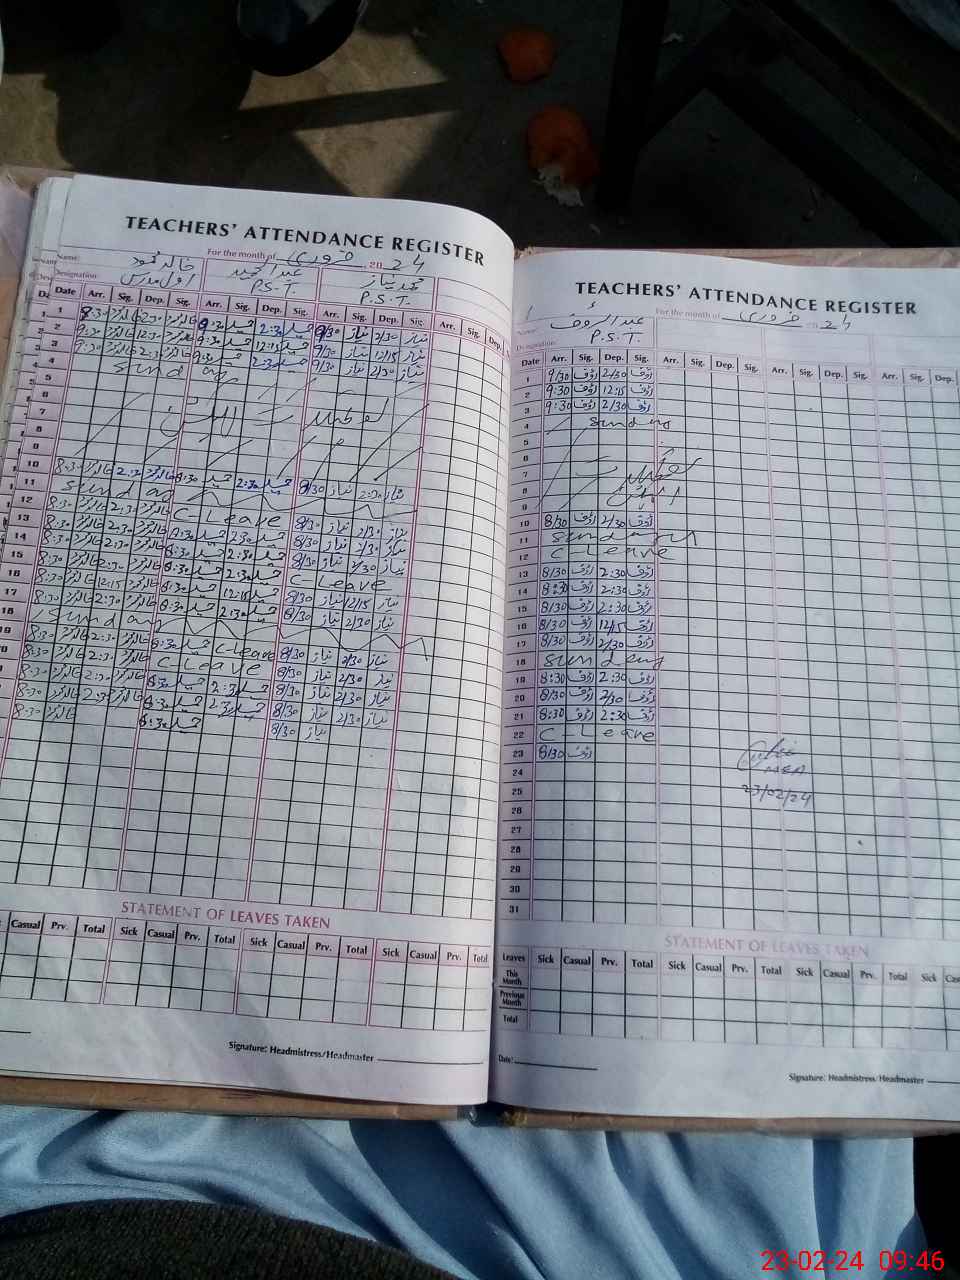 TEACHERS' ATTENDANCE REGISTER
Name: خالد محمود For the month of فروری 2024
Designation: اول مدرس عبدالمجید P.S.T. محمد نیاز P.S.T.
Date Arr. Sig. Dep. Sig. Arr. Sig. Dep. Sig. Arr. Sig. Dep. Sig. Arr. Sig. Dep.
1 8:30 2:30 8:30 2:30 9/30 نیاز 2/30 نیاز
2 9:30 12:30 9:30 12:15 9/30 نیاز 12/15 نیاز
3 9:30 2:30 9:30 2:30 9/30 نیاز 2/30 نیاز
4 Sunday
5
6
7 تعطیل الیکشن
8
9
10 8:30 2:30 8:30 2:30 8/30 نیاز 2:30 نیاز
11 Sunday
12 8:30 2:30 C Leave 8/30 نیاز 2/30 نیاز
13 8:30 2:30 8:30 2:30 8/30 نیاز 2/30 نیاز
14 8:30 2:30 8:30 2:30 8/30 نیاز 2/30 نیاز
15 8:30 2:30 8:30 2:30 C Leave
16 8:30 12:15 8:30 12:15 8/30 نیاز 12/15 نیاز
17 8:30 2:30 8:30 2:30 8/30 نیاز 2/30 نیاز
18 Sunday
19 8:30 2:30 8:30 C Leave 8/30 نیاز 2/30 نیاز
8:30 2:30 C Leave 8/30 نیاز 2/30 نیاز
8:30 2:30 8:30 2:30 8/30 نیاز 2/30 نیاز
8:30 2:30 8:30 2:30 8/30 نیاز 2/30 نیاز
8:30 8:30 8/30 نیاز
STATEMENT OF LEAVES TAKEN
Casual Prv. Total Sick Casual Prv. Total Sick Casual Prv. Total Sick Casual Prv. Total
Signature: Headmistress/Headmaster
TEACHERS' ATTENDANCE REGISTER
Name: عبدالرؤف For the month of فروری 2024
Designation: P.S.T.
Date Arr. Sig. Dep. Sig. Arr. Sig. Dep. Sig. Arr. Sig. Dep. Sig. Arr. Sig. Dep.
1 9/30 رؤف 2/30 رؤف
2 9:30 رؤف 12:15 رؤف
3 9:30 رؤف 2/30 رؤف
4 Sunday
5
6
7 تعطیل
8 الیکشن
9
10 8/30 رؤف 2/30 رؤف
11 Sunday
12 C Leave
13 8/30 رؤف 2:30 رؤف
14 8:30 رؤف 2:30 رؤف
15 8/30 رؤف 2:30 رؤف
16 8/30 رؤف 12/15 رؤف
17 8/30 رؤف 2/30 رؤف
18 Sunday
19 8:30 رؤف 2:30 رؤف
20 8/30 رؤف 2/30 رؤف
21 8:30 رؤف 2:30 رؤف
22 C-Leave
23 8/30 رؤف
24 MEA
25 23/02/24
26
27
28
29
30
31
STATEMENT OF LEAVES TAKEN
Leaves Sick Casual Prv. Total Sick Casual Prv. Total Sick Casual Prv. Total Sick
This Month
Previous Month
Total
Date:
Signature: Headmistress/Headmaster
23-02-24 09:46